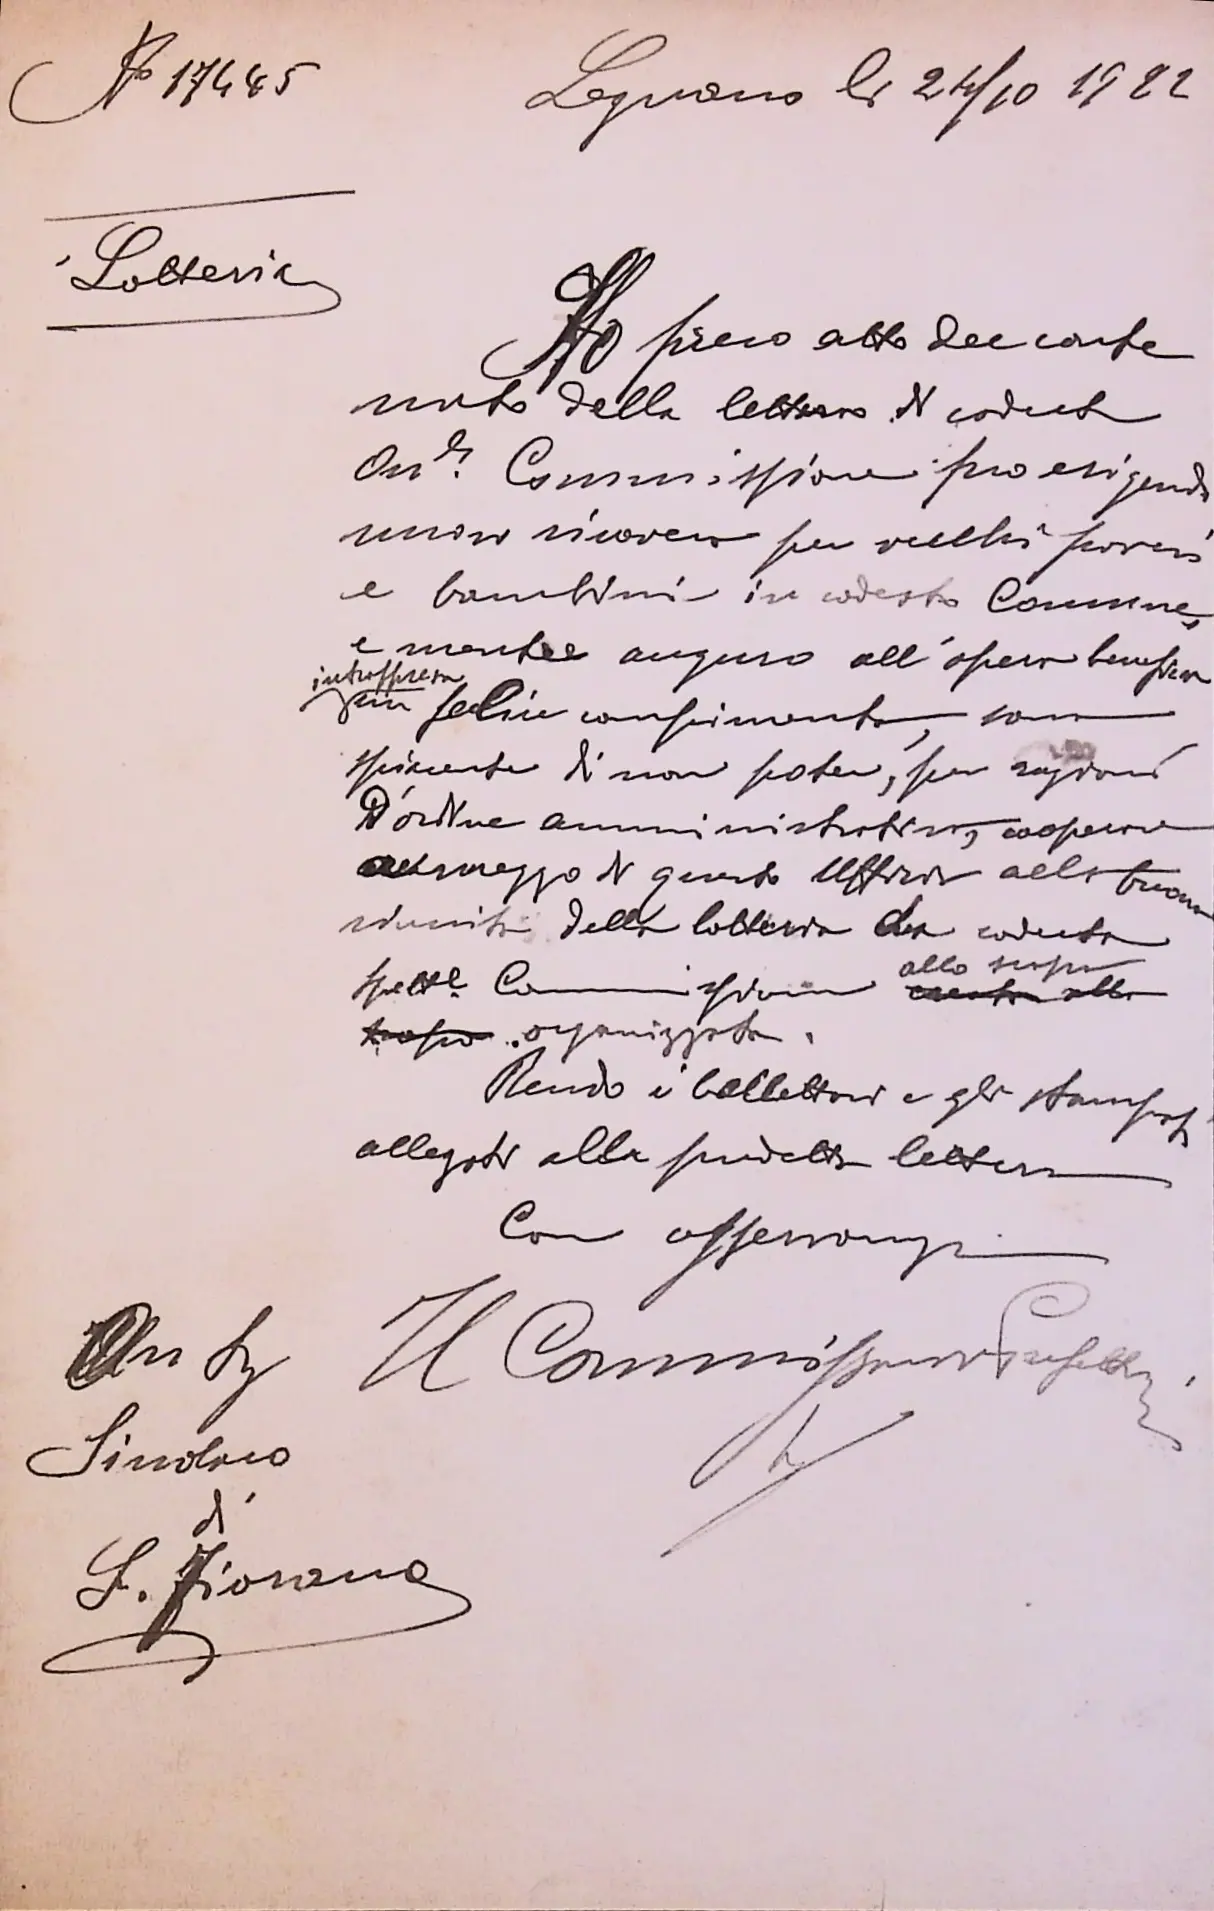 No 17445
Legnano li 24/10 1922
Lotteria
Ho preso atto del conte
nuto della lettera di codesta
On.le Commissione pro erigendo
nuovo ricovero per vecchi poveri
e bambini in codesto Comune,
e mentre auguro all'opera benefica
intrapresa
un felice compimento, sono
spiacente di non poter, per ragioni
d'ordine amministrativo, cooperare
a mezzo di questo Ufficio alla buona
riuscita della lotteria da codesta
allo scopo
spett.le Commissione alla
scopo organizzata.
Rendo i bollettari e gli stampati
allegati alla predetta lettera
Con osservanza
Il Commissario Prefettizio
On Sig
Sindaco
di
S. Giorgio